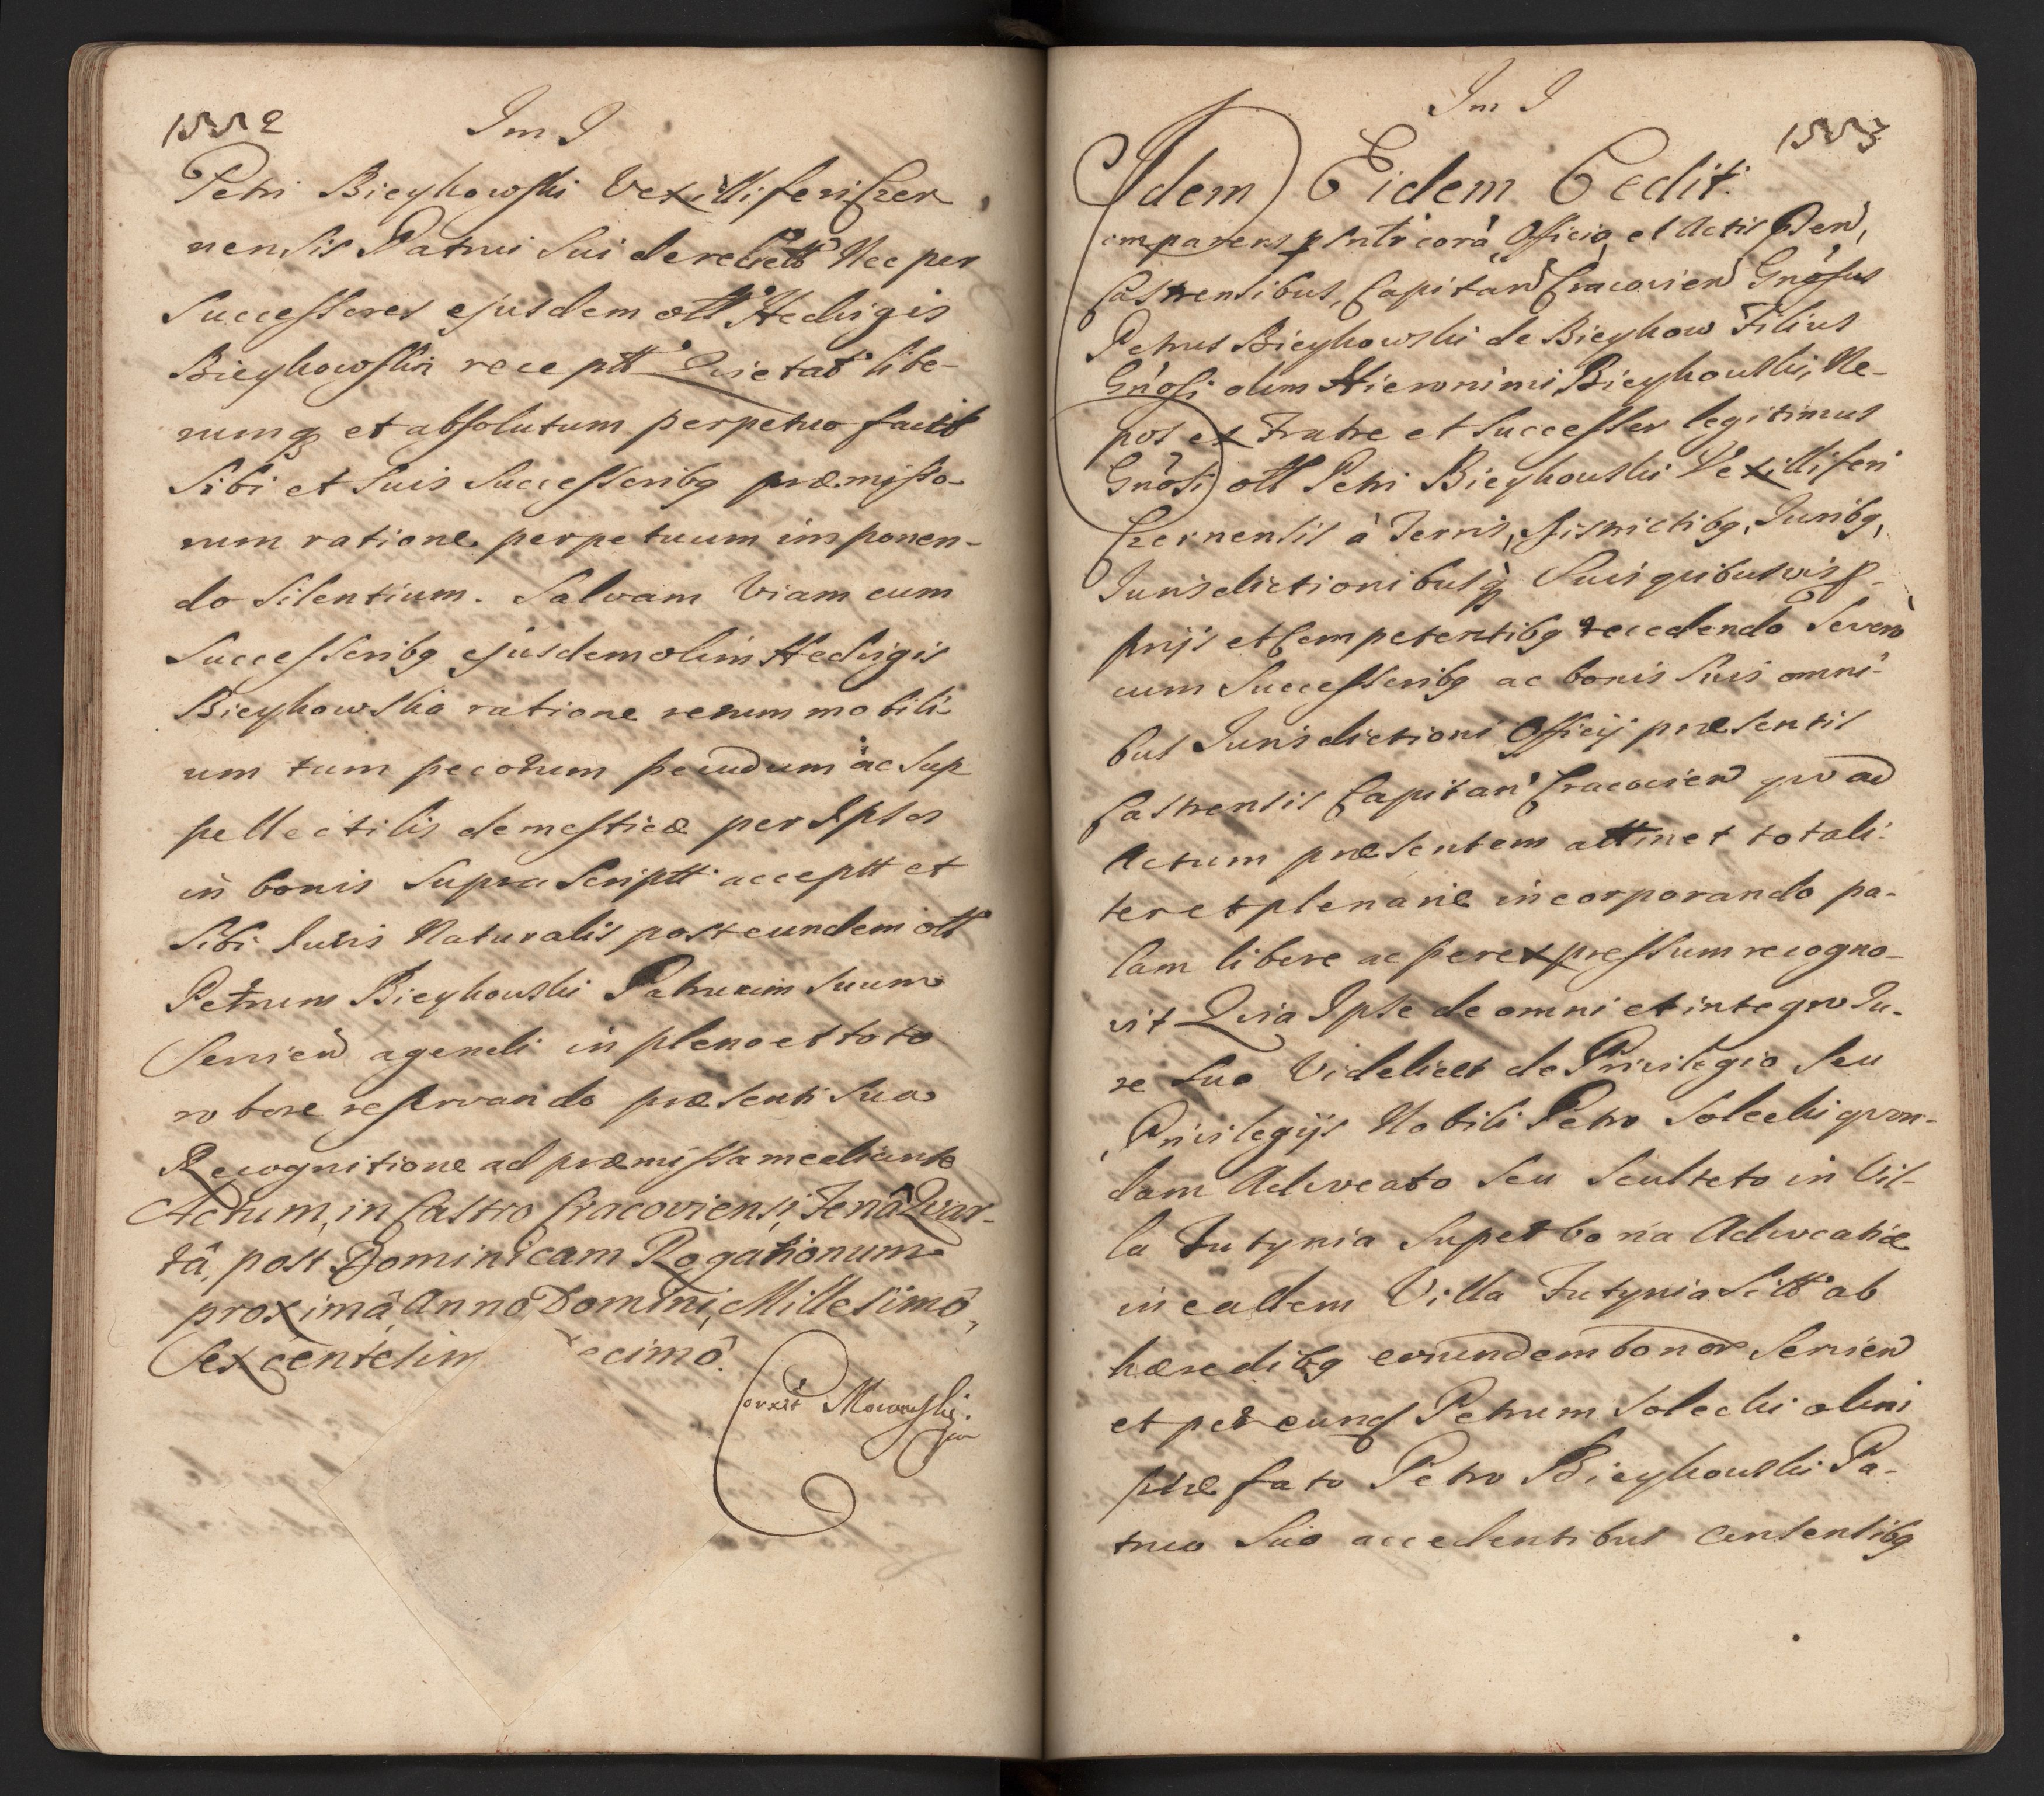 1552
Im I
Petri Bieykowski Vexilliferi Czer
nensis Patrui Sui derelictt Nec per
Successores ejusdem oll Hedvigis
Bieykowskiā receptt Qvietat libe-
rumq et absolutum perpetuo facit
Sibi et Suis Successoribq præmisso-
rum ratione perpetuum imponen-
do Silentium. Salvam Viam cum
Successoribq ejusdem olim Hedvigis
Bieykowska ratione rerum mobili-
um tum pecorum pecudum ac Sup
pellectilis domesticæ per Ipsos
in bonis Supra Scriptt acceptt et
Sibi Iuris Naturalis post eundem oll
Petrum Bieykowski Patruum Suum
Servien agendi in pleno et toto
robore reservando præsenti Sua
Recognitione ad præmissa mediante
Actum, in Castro Cracoviensi, Feriâ Qvar-
tâ, post Dominicam Rogationum
proximâ, Anno Domini, Millesimô,
Sexcentesim ecimô.
Corrxit
1553
Im I
Idem Eidem Cedit.
omparens psntr corā Officio et Actis Pðen,
Castrensibus, Capitan Cracovien Gnosus
Petrus Bieykowski de Bieykow Filius
Gnosi olim Hieronimi Bieykowski, Ne-
pos ex Fratre et Successor legitimus
Gnosi oll Petri Bieykowski Vexilliferi
Czernensis à Terris, Districtibq, Juribq,
Iurisdictionibusq Suis quibusvis p-
prijs et Competentibq recedendo Severo
cum Successoribq ac bonis Suis omni-
bus Jurisdictioni Officij præsentis
Castrensis Capitan Cracovien qvoad
Actum præsentem attinet totali-
ter et plenarie incorporando pa-
lam libere ac per expressum recogno-
vit Qvia Ipse de omni et integro Iu-
re Suo Videlicet de Privilegio Seu
Privilegijs Nobili Petro Solecki qvon-
dam Advocato Seu Sculteto in Vil-
la Jutynia Super bona Advocatiæ
in eadem Villa Jutynia Sitt ab
hæredibq eorundem bonor Servien
et per eund Petrum Solecki olim
præfato Petro Bieykowski Pa-
truo Suo accedentibus Consensibq